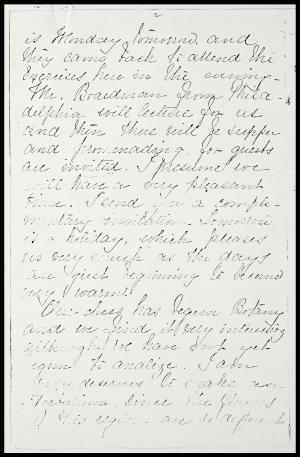 2
is Monday tomorrow, and
they came back to attend the
Exercises here in the evening.
Mr. Boardman from Phila-
delphia will lecture for us
and then there will be supper
and promenading, for guests
are invited. I presume we
will have a very pleasant
time. I send you a comple-
mentary invitation. Tomorrow
is a holiday, which pleases
us very much as the days
are just beginning to become
very warm.
Our class has begun Botany
and we find it very interesting
although we have not yet
begun to analize. I am
very desirous to make an
Herbarium, since the flowers
of this region are so different